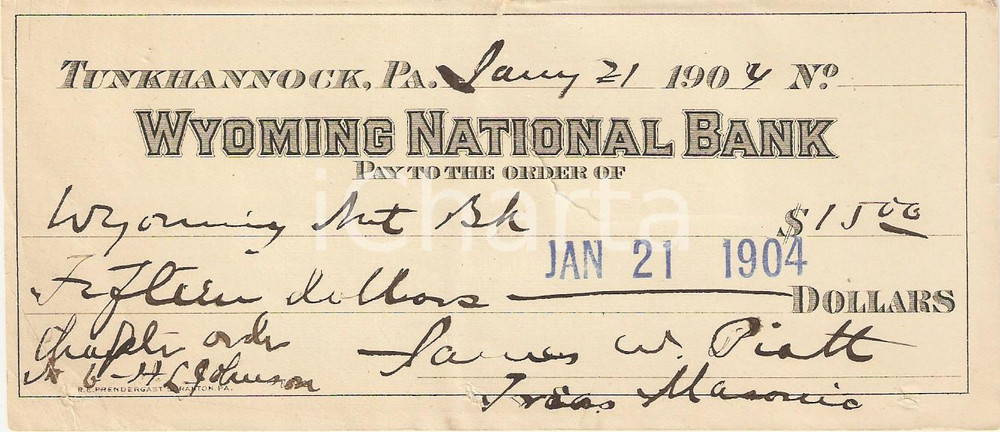 TUNKHANNOCK, PA. Jany 21 1904 No.
WYOMING NATIONAL BANK
PAY TO THE ORDER OF
Wyoming Nat Bk $15 00
JAN 21 1904
Fifteen dollars DOLLARS
Chapter order James W. Piatt
No 6 - H L Johnson Treas Masonic
R.E. PRENDERGAST SCRANTON, PA.
iCharta